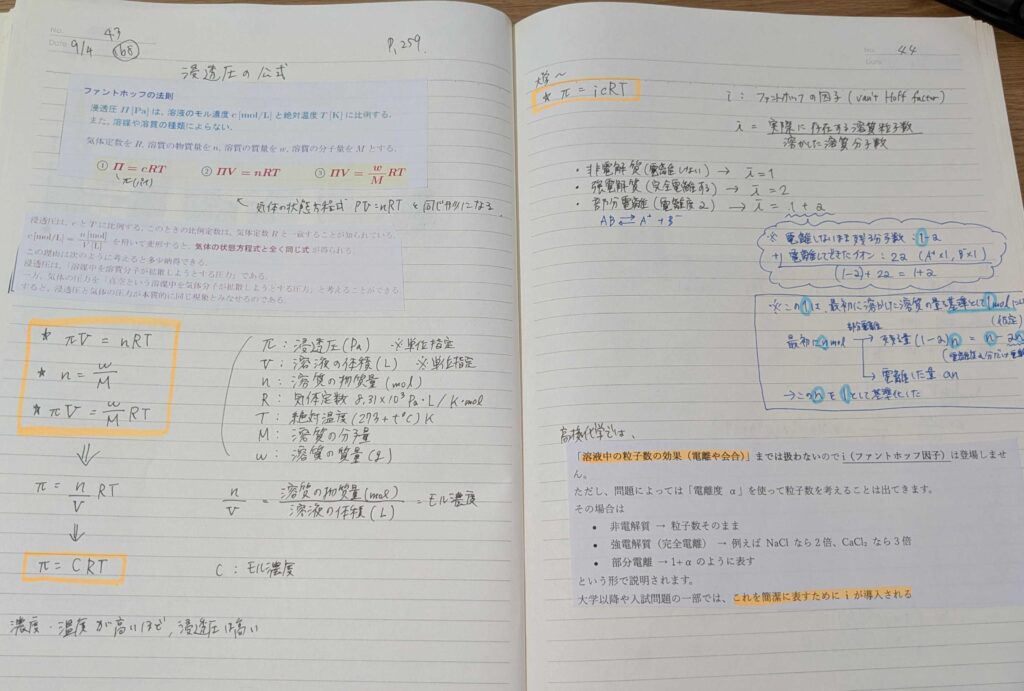 No. 43
Date 9/4 (68)
P.259.
浸透圧の公式
ファントホッフの法則
浸透圧 Π [Pa] は, 溶液のモル濃度 c [mol/L] と絶対温度 T [K] に比例する.
また, 溶媒や溶質の種類によらない.
気体定数を R, 溶質の物質量を n, 溶質の質量を w, 溶質の分子量を M とする.
① Π = cRT ② ΠV = nRT ③ ΠV = w/M RT
π(パイ)
気体の状態方程式 PV=nRT と同じかたちになる
浸透圧は, c と T に比例する. このときの比例定数は, 気体定数 R と一致することが知られている.
c [mol/L] = n [mol] / V [L] を用いて変形すると, 気体の状態方程式と全く同じ式が得られる.
この理由は次のように考えると多少納得できる.
浸透圧は, 「溶媒中を溶質分子が拡散しようとする圧力」である.
一方, 気体の圧力を「真空という溶媒中を気体分子が拡散しようとする圧力」と考えることができる.
すると, 浸透圧と気体の圧力が本質的に同じ現象とみなせるのである.
* πV = nRT
* n = w/M
* πV = w/M RT
π : 浸透圧(Pa) ※単位指定
V : 溶液の体積(L) ※単位指定
n : 溶質の物質量(mol)
R : 気体定数 8.31×10³ Pa・L / K・mol
T : 絶対温度 (273+t℃) K
M : 溶質の分子量
w : 溶質の質量(g)
π = n/V RT
n/V = 溶質の物質量(mol) / 溶液の体積(L) = モル濃度
π = CRT
C : モル濃度
濃度・温度が高いほど, 浸透圧は高い
No. 44
Date
大学〜
* π = icRT
i : ファントホッフの因子 (van't Hoff factor)
i = 実際に存在する溶質粒子数 / 溶かした溶質分子数
・非電解質(電離しない) → i=1
・強電解質(完全電離する) → i=2
・部分電離(電離度α) → i = 1+α
AB ⇄ A⁺ + B⁻
※ 電離しないまま残る分子数 : 1-α
+) 電離してできたイオン : 2α (A⁺×1, B⁻×1)
(1-α) + 2α = 1+α
※この1は、最初に溶かした溶質の量を基準として1mol
(仮定)
部分電離
最初にn mol → 残量 (1-α)n = n-αn
→ 電離した量 αn
→ このnを1として基準化した
高校化学では、
「溶液中の粒子数の効果（電離や会合）」までは扱わないので i（ファントホッフ因子）は登場しませ
ん。
ただし、問題によっては「電離度 α」を使って粒子数を考えることは出てきます。
その場合は
• 非電解質 → 粒子数そのまま
• 強電解質（完全電離） → 例えば NaCl なら 2 倍、CaCl₂ なら 3 倍
• 部分電離 → 1+α のように表す
という形で説明されます。
大学以降や入試問題の一部では、これを簡潔に表すために i が導入される